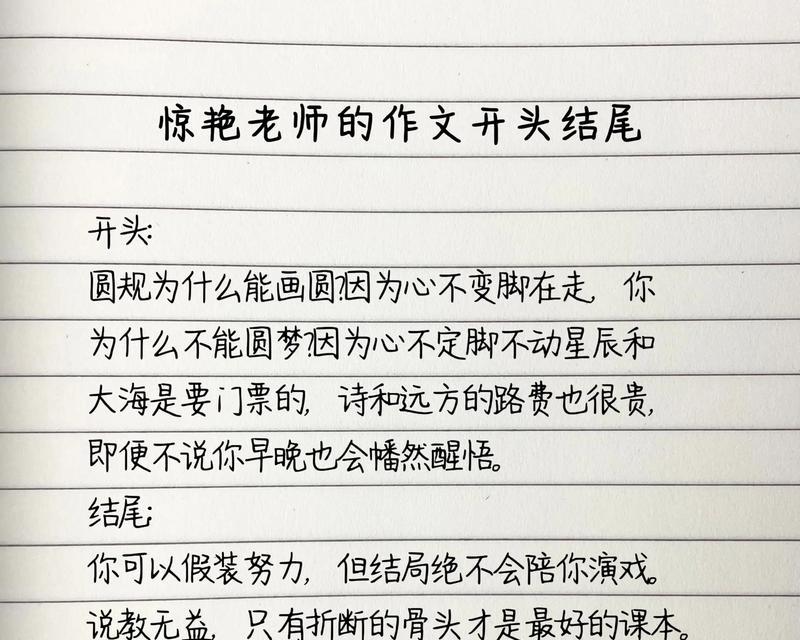 惊艳老师的作文开头结尾
开头:
圆规为什么能画圆?因为心不变脚在走, 你
为什么不能圆梦?因为心不定脚不动星辰和
大海是要门票的, 诗和远方的路费也很贵,
即便不说你早晚也会幡然醒悟。
结尾:
你可以假装努力, 但结局绝不会陪你演戏。
说教无益, 只有折断的骨头才是最好的课本。